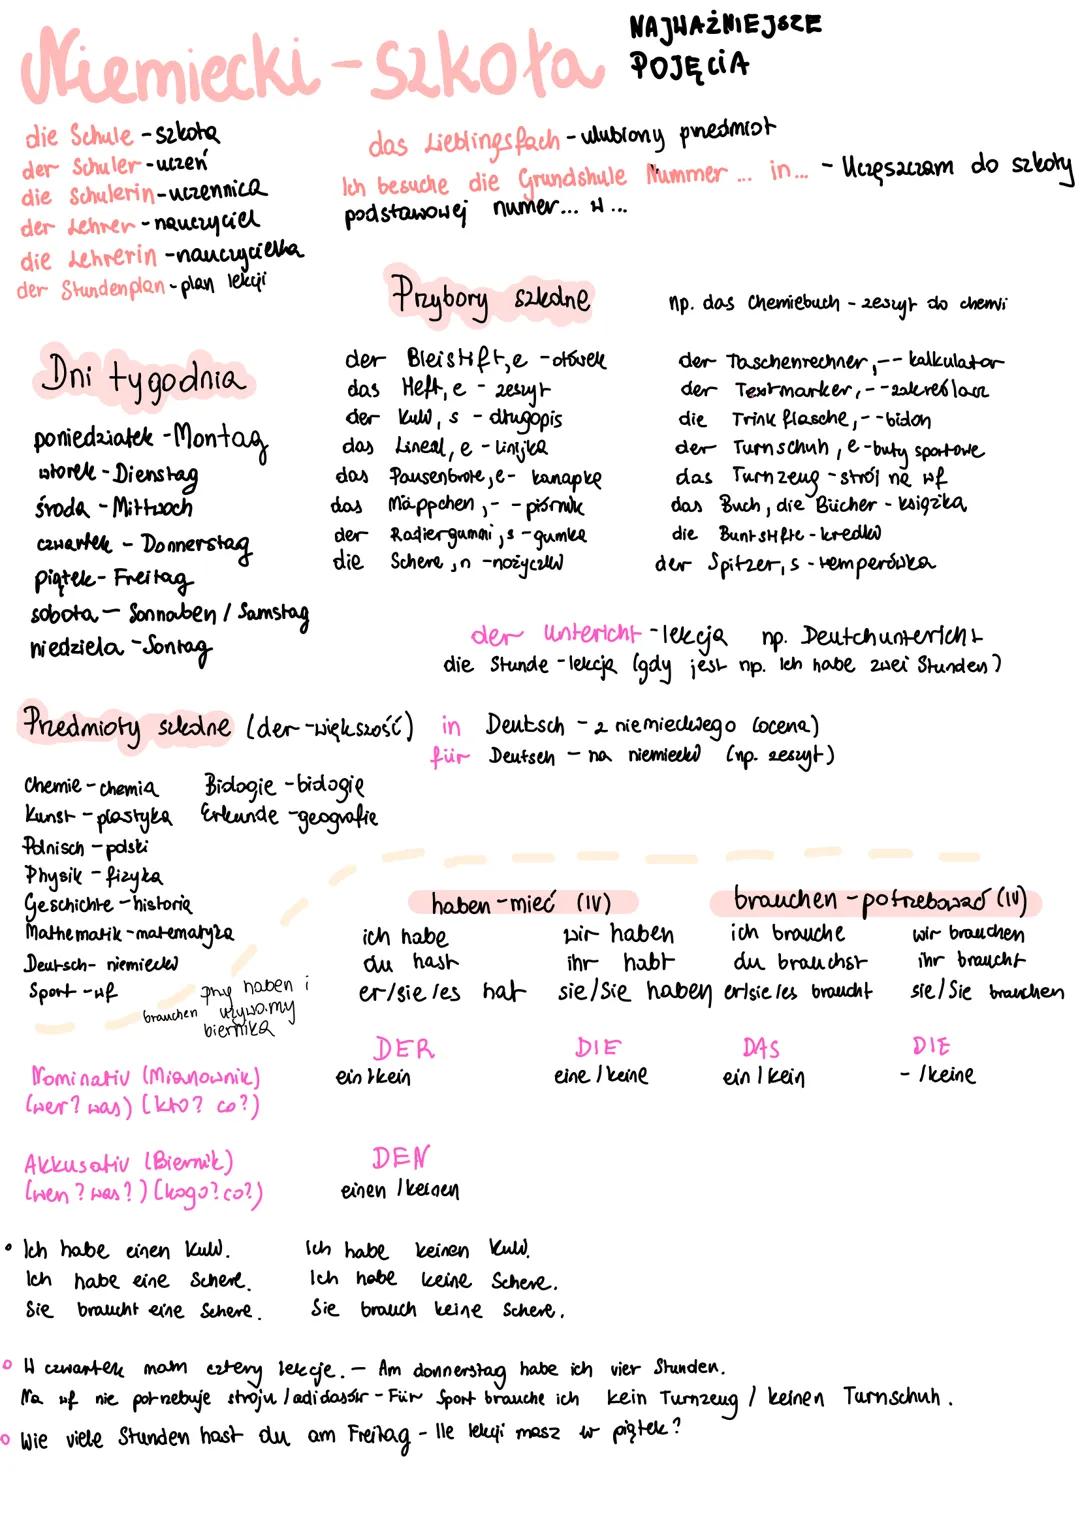 Niemiecki - szkoła
NAJWAŻNIEJSZE
POJĘCIA
die Schule - szkoła
der Schuler - uczeń
die Schulerin - uczennica
der Lehrer - nauczyciel
die Lehrerin - nauczycielka
der Stundenplan - plan lekcji
das Lieblingsfach - ulubiony przedmiot
Ich besuche die Grundshule Nummer ... in... - Uczęszczam do szkoły
podstawowej numer... w ...
Dni tygodnia
poniedziałek - Montag
wtorek - Dienstag
środa - Mittwoch
czwartek - Donnerstag
piątek - Freitag
sobota - Sonnaben / Samstag
niedziela - Sontag
Przybory szkolne
der Bleistift, e - ołówek
das Heft, e - zeszyt
der Kuli, s - długopis
das Lineal, e - linijka
das Pausenbrote, e - kanapkę
das Mäppchen, - - piórnik
der Radiergummi, s - gumka
die Schere, n - nożyczki
np. das Chemiebuch - zeszyt do chemii
der Taschenrechner, - - kalkulator
der Textmarker, - - zakreślacz
die Trinkflasche, - - bidon
der Turnschuh, e - buty sportowe
das Turnzeug - strój na wf
das Buch, die Bücher - książka
die Buntstifte - kredki
der Spitzer, s - temperówka
der Untericht - lekcja np. Deutchuntericht
die Stunde - lekcja (gdy jest np. Ich habe zwei Stunden)
Przedmioty szkolne (der - większość)
in Deutsch - z niemieckiego (ocena)
für Deutsch - na niemiecki (np. zeszyt)
Chemie - chemia
Kunst - plastyka
Polnisch - polski
Physik - fizyka
Geschichte - historia
Mathematik - matematyka
Deutsch - niemiecki
Sport - wf
Biologie - biologię
Erkunde - geografie
przy haben i
brauchen używamy
biernika
haben - mieć (IV)
ich habe wir haben
du hast ihr habt
er/sie/es hat sie/Sie haben
brauchen - potrzebować (IV)
ich brauche wir brauchen
du brauchst ihr braucht
er/sie/es braucht sie/Sie brauchen
DER DIE DAS DIE
Nominativ (Mianownik) ein / kein eine / keine ein / kein - / keine
(wer? was) (kto? co?)
Akkusativ (Biernik) DEN
(wen? was?) (kogo? co?) einen / keinen
• Ich habe einen Kuli. Ich habe keinen Kuli.
Ich habe eine Schere. Ich habe keine Schere.
Sie braucht eine Schere. Sie brauch keine Schere.
W czwartek mam cztery lekcje. - Am donnerstag habe ich vier Stunden.
Na wf nie potrzebuje stroju / adidasów - Für Sport brauche ich kein Turnzeug / keinen Turnschuh.
Wie viele Stunden hast du am Freitag - Ile lekcji masz w piątek?